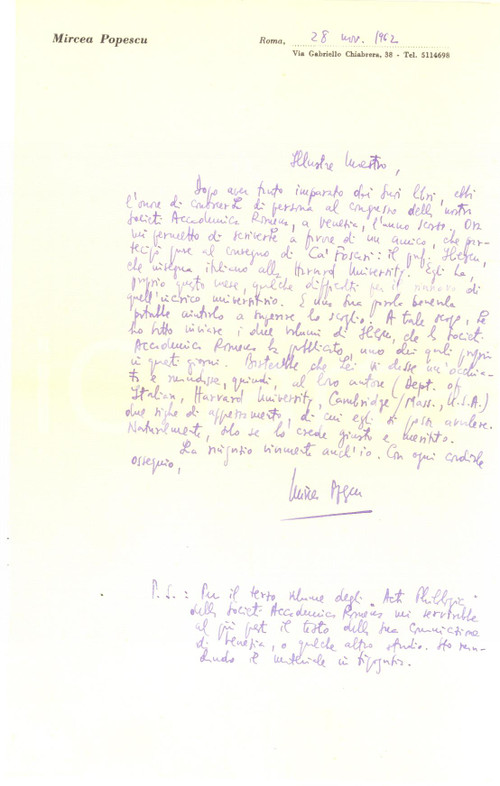 Mircea Popescu
Roma, 28 nov. 1962
Via Gabriello Chiabrera, 38 - Tel. 5114698
Illustre Maestro,
Dopo aver tanto imparato dai Suoi libri, ebbi
l'onore di conoscerLa di persona al congresso della nostra
Società Accademica Romena, a Venezia, l'anno scorso. Ora
mi permetto di scriverLe a favore di un amico, che par-
tecipò pure al convegno di Ca' Foscari: il prof.
che insegna italiano alla Harvard University. Egli ha,
proprio questo mese, qualche difficoltà per il rinnovo di
quell'incarico universitario. E una Sua parola benevola
potrebbe aiutarlo a superare lo scoglio. A tale scopo, Le
ho fatto inviare i due volumi di che la Società
Accademica Romena ha pubblicato, uno dei quali proprio
in questi giorni. Basterebbe che Lei vi desse un'occhia-
ta e mandasse, quindi, al loro autore (Dept. of
Italian, Harvard University, Cambridge/Mass., U.S.A.)
due righe di apprezzamento, di cui egli si possa avvalere.
Naturalmente, solo se lo crede giusto e meritato.
La ringrazio vivamente anch'io. Con ogni cordiale
ossequio,
Mircea Popescu
P.S.: Per il terzo volume degli "Acta Philologica"
della Società Accademica Romena mi servirebbe
al più presto il testo della Sua comunicazione
di Venezia, o qualche altro studio. Sto man-
dando il materiale in tipografia.